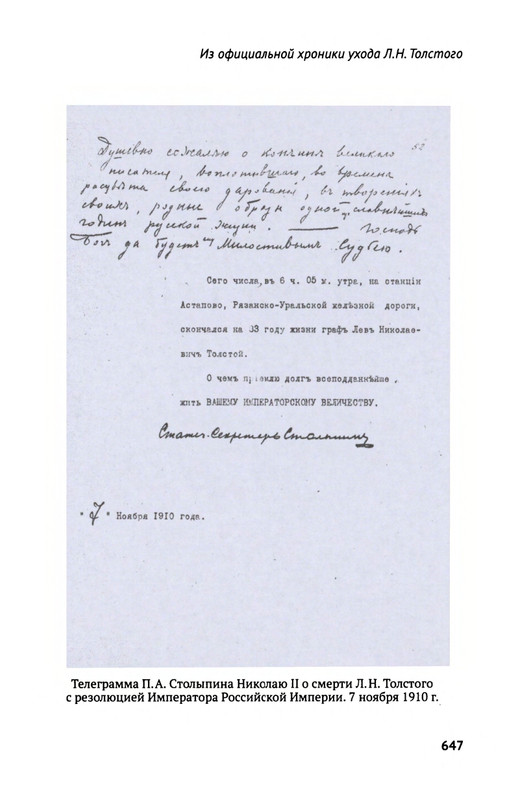 Из официальной хроники ухода Л.Н. Толстого
Душевно сожалѣю о кончинѣ великаго
писателя, воплотившаго, во времена
расцвѣта своего дарованія, въ твореніяхъ
своихъ, родные образы одной изъ славнѣйшихъ
годинъ русской жизни. Господь
Богъ да будетъ ему Милостивымъ Судьею.
Сего числа, въ 6 ч. 05 м. утра, на станціи
Астапово, Рязанско-Уральской желѣзной дороги,
скончался на 83 году жизни графъ Левъ Николае-
вичъ Толстой.
О чемъ пріемлю долгъ всеподданнѣйше
жить ВАШЕМУ ИМПЕРАТОРСКОМУ ВЕЛИЧЕСТВУ.
Статсъ-Секретарь Столыпинъ
"7" Ноября 1910 года.
Телеграмма П.А. Столыпина Николаю II о смерти Л.Н. Толстого
с резолюцией Императора Российской Империи. 7 ноября 1910 г.
647